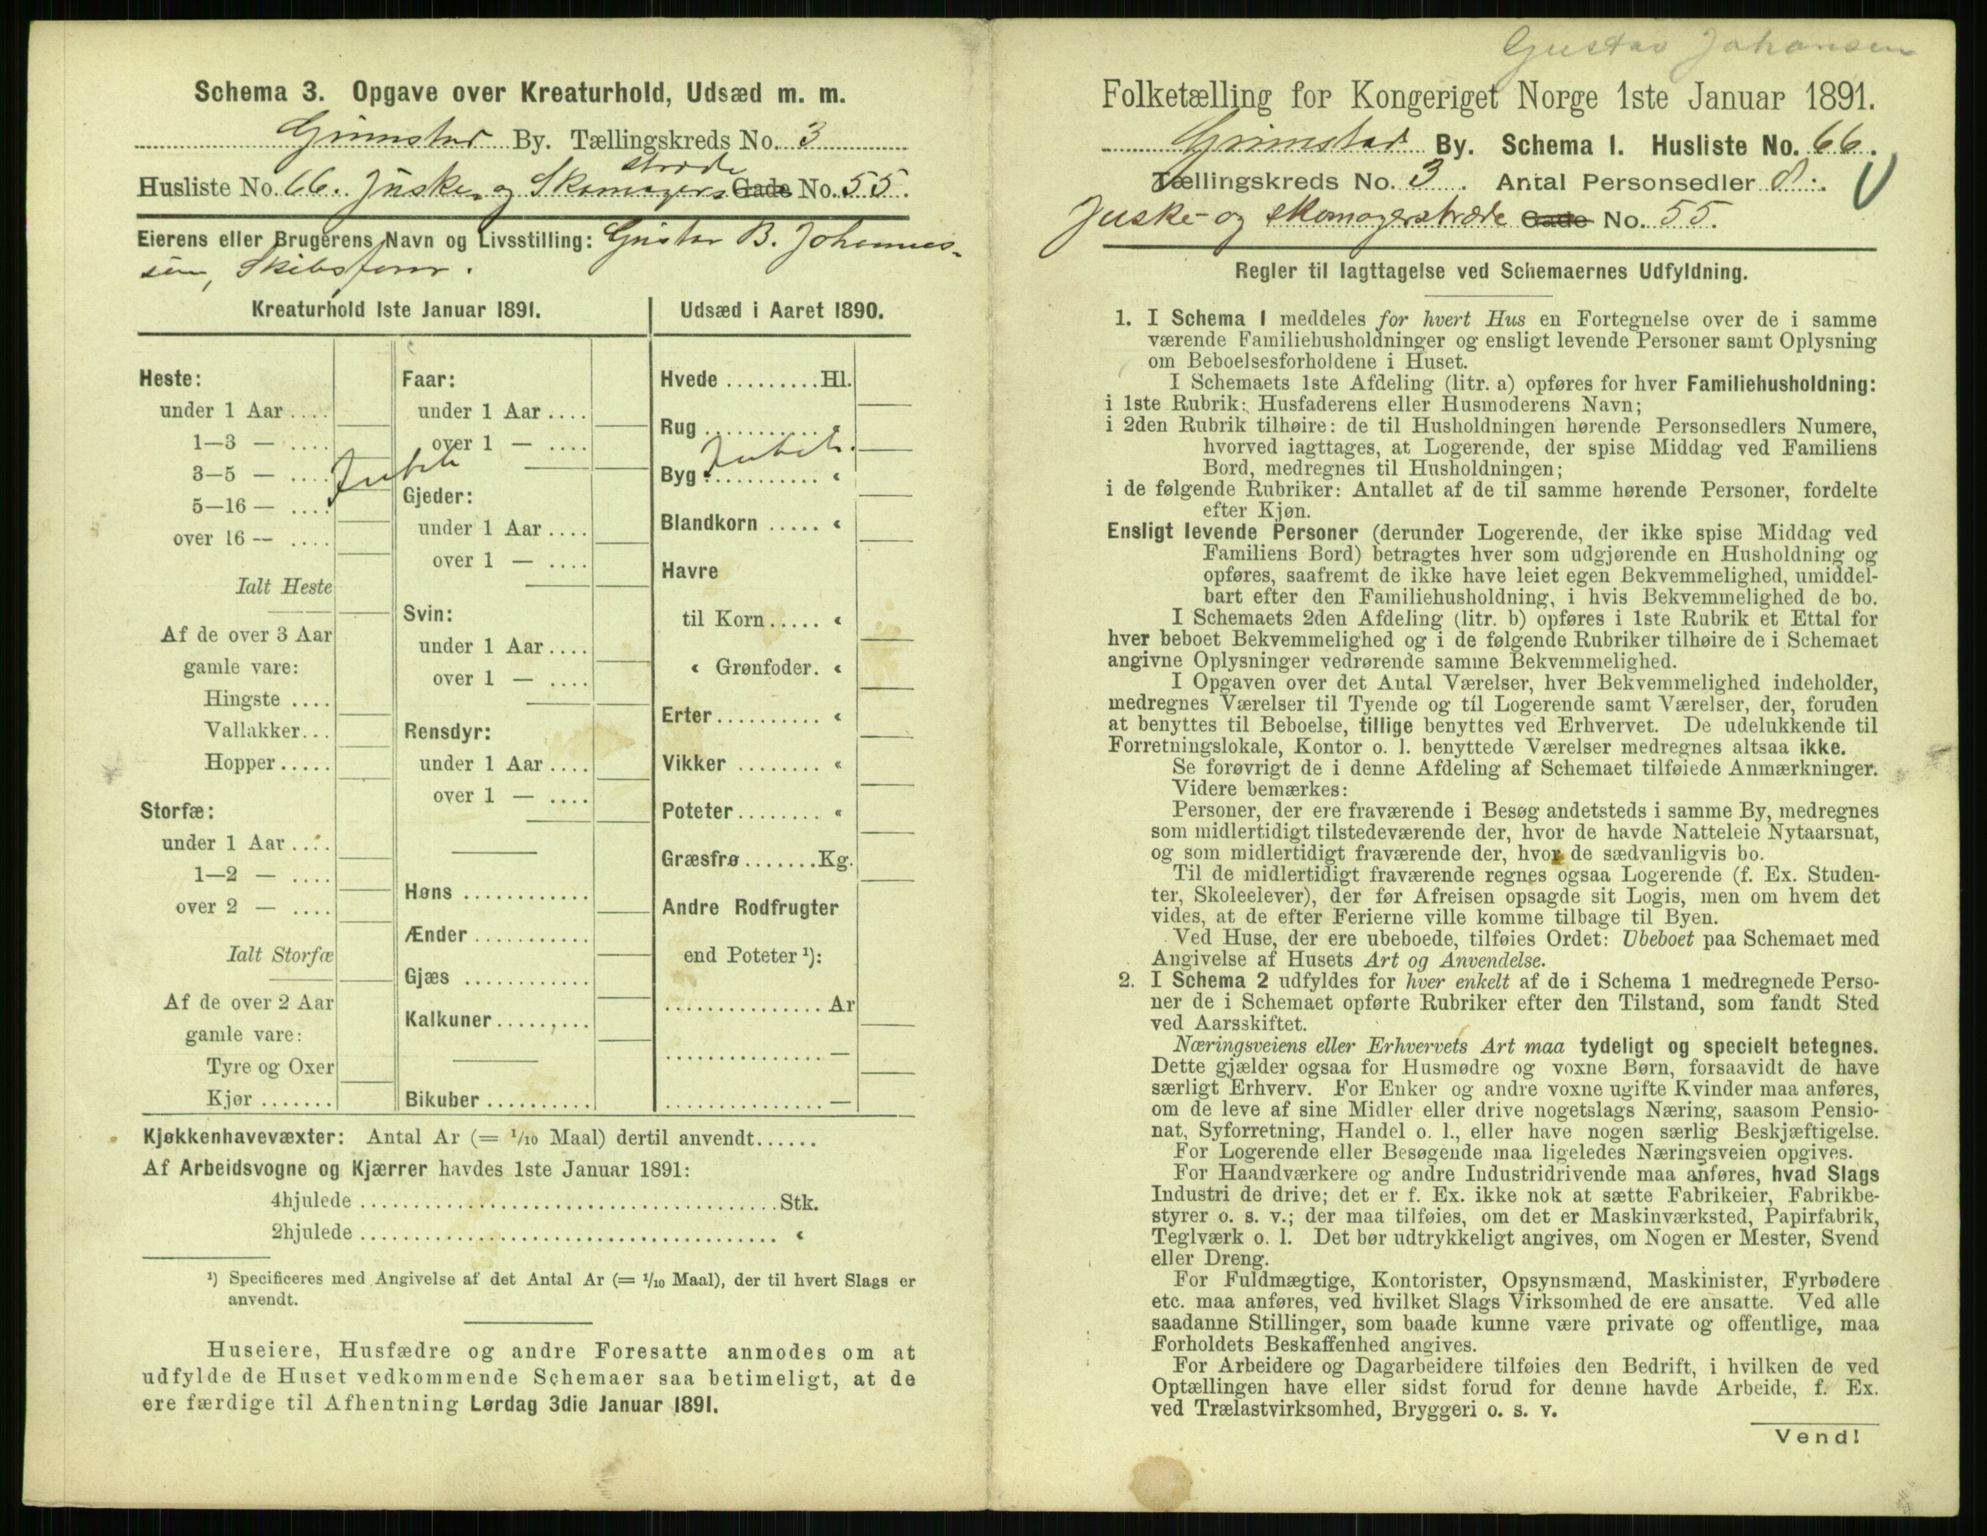 Schema 3. Opgave over Kreaturhold, Udsæd m. m.
Grimstad By. Tællingskreds No. 3
stræde
Husliste No. 66. Juske- og Skomagers Gade No. 55.
Eierens eller Brugerens Navn og Livsstilling: Gustav B. Johannes-
sen, Skibsfører.
Kreaturhold 1ste Januar 1891.
Heste:
under 1 Aar ....
1—3 — ....
3—5 — ....
5—16 — ....
over 16 — ....
Ialt Heste
Af de over 3 Aar
gamle vare:
Hingste ....
Vallakker...
Hopper.....
Storfæ:
under 1 Aar ....
1—2 — ....
over 2 — ....
Ialt Storfæ
Af de over 2 Aar
gamle vare:
Tyre og Oxer
Kjør .......
Faar:
under 1 Aar ....
over 1 — ....
Gjeder:
under 1 Aar ....
over 1 — ....
Svin:
under 1 Aar ....
over 1 — ....
Rensdyr:
under 1 Aar ....
over 1 — ....
Høns ............
Ænder ...........
Gjæs ............
Kalkuner.........
Bikuber ..........
Udsæd i Aaret 1890.
Hvede .........Hl.
Rug........... «
Byg ........... «
Blandkorn ..... «
Havre
til Korn..... «
« Grønfoder. «
Erter.......... «
Vikker ........ «
Poteter........ «
Græsfrø.......Kg.
Andre Rodfrugter
end Poteter ¹):
...............Ar
...............—
...............—
Kjøkkenhavevæxter: Antal Ar (= 1/10 Maal) dertil anvendt......
Af Arbeidsvogne og Kjærrer havdes 1ste Januar 1891:
4hjulede ......................................Stk.
2hjulede ...................................... «
¹) Specificeres med Angivelse af det Antal Ar (= 1/10 Maal), der til hvert Slags er
anvendt.
Huseiere, Husfædre og andre Foresatte anmodes om at
udfylde de Huset vedkommende Schemaer saa betimeligt, at de
ere færdige til Afhentning Lørdag 3die Januar 1891.
Gustav Johansen
Folketælling for Kongeriget Norge 1ste Januar 1891.
Grimstad By. Schema 1. Husliste No. 66.
Tællingskreds No. 3. Antal Personsedler 8.
Juske- og Skomagerstræde Gade No. 55.
Regler til Iagttagelse ved Schemaernes Udfyldning.
1. I Schema 1 meddeles for hvert Hus en Fortegnelse over de i samme
værende Familiehusholdninger og ensligt levende Personer samt Oplysning
om Beboelsesforholdene i Huset.
I Schemaets 1ste Afdeling (litr. a) opføres for hver Familiehusholdning:
i 1ste Rubrik: Husfaderens eller Husmoderens Navn;
i 2den Rubrik tilhøire: de til Husholdningen hørende Personsedlers Numere,
hvorved iagttages, at Logerende, der spise Middag ved Familiens
Bord, medregnes til Husholdningen;
i de følgende Rubriker: Antallet af de til samme hørende Personer, fordelte
efter Kjøn.
Ensligt levende Personer (derunder Logerende, der ikke spise Middag ved
Familiens Bord) betragtes hver som udgjørende en Husholdning og
opføres, saafremt de ikke have leiet egen Bekvemmelighed, umiddel-
bart efter den Familiehusholdning, i hvis Bekvemmelighed de bo.
I Schemaets 2den Afdeling (litr. b) opføres i 1ste Rubrik et Ettal for
hver beboet Bekvemmelighed og i de følgende Rubriker tilhøire de i Schemaet
angivne Oplysninger vedrørende samme Bekvemmelighed.
I Opgaven over det Antal Værelser, hver Bekvemmelighed indeholder,
medregnes Værelser til Tyende og til Logerende samt Værelser, der, foruden
at benyttes til Beboelse, tillige benyttes ved Erhvervet. De udelukkende til
Forretningslokale, Kontor o. l. benyttede Værelser medregnes altsaa ikke.
Se forøvrigt de i denne Afdeling af Schemaet tilføiede Anmærkninger.
Videre bemærkes:
Personer, der ere fraværende i Besøg andetsteds i samme By, medregnes
som midlertidigt tilstedeværende der, hvor de havde Natteleie Nytaarsnat,
og som midlertidigt fraværende der, hvor de sædvanligvis bo.
Til de midlertidigt fraværende regnes ogsaa Logerende (f. Ex. Studen-
ter, Skoleelever), der før Afreisen opsagde sit Logis, men om hvem det
vides, at de efter Ferierne ville komme tilbage til Byen.
Ved Huse, der ere ubeboede, tilføies Ordet: Ubeboet paa Schemaet med
Angivelse af Husets Art og Anvendelse.
2. I Schema 2 udfyldes for hver enkelt af de i Schema 1 medregnede Perso-
ner de i Schemaet opførte Rubriker efter den Tilstand, som fandt Sted
ved Aarsskiftet.
Næringsveiens eller Erhvervets Art maa tydeligt og specielt betegnes.
Dette gjælder ogsaa for Husmødre og voxne Børn, forsaavidt de have
særligt Erhverv. For Enker og andre voxne ugifte Kvinder maa anføres,
om de leve af sine Midler eller drive nogetslags Næring, saasom Pensio-
nat, Syforretning, Handel o. l., eller have nogen særlig Beskjæftigelse.
For Logerende eller Besøgende maa ligeledes Næringsveien opgives.
For Haandværkere og andre Industridrivende maa anføres, hvad Slags
Industri de drive; det er f. Ex. ikke nok at sætte Fabrikeier, Fabrikbe-
styrer o. s. v.; der maa tilføies, om det er Maskinværksted, Papirfabrik,
Teglværk o. l. Det bør udtrykkeligt angives, om Nogen er Mester, Svend
eller Dreng.
For Fuldmægtige, Kontorister, Opsynsmænd, Maskinister, Fyrbødere
etc. maa anføres, ved hvilket Slags Virksomhed de ere ansatte. Ved alle
saadanne Stillinger, som baade kunne være private og offentlige, maa
Forholdets Beskaffenhed angives.
For Arbeidere og Dagarbeidere tilføies den Bedrift, i hvilken de ved
Optællingen have eller sidst forud for denne havde Arbeide, f. Ex.
ved Trælastvirksomhed, Bryggeri o. s. v.
Vend!